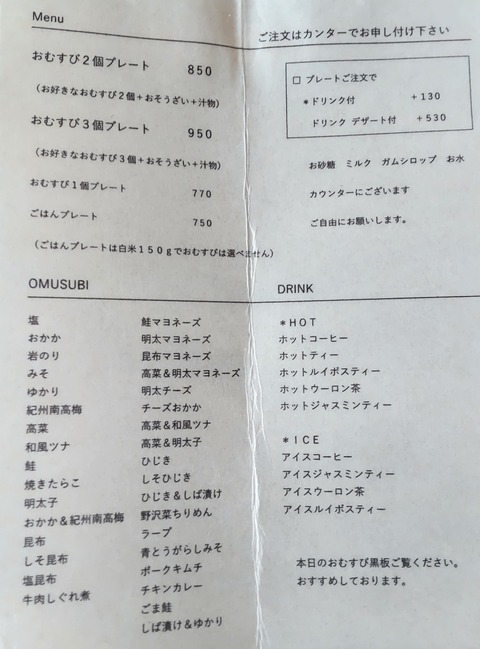 Menu
ご注文はカンターでお申し付け下さい
おむすび2個プレート 850
(お好きなおむすび2個+おそうざい+汁物)
おむすび3個プレート 950
(お好きなおむすび3個+おそうざい+汁物)
おむすび1個プレート 770
ごはんプレート 750
(ごはんプレートは白米150gでおむすびは選べません)
□ プレートご注文で
*ドリンク付 +130
ドリンク デザート付 +530
お砂糖 ミルク ガムシロップ お水
カウンターにございます
ご自由にお願いします。
OMUSUBI
塩
おかか
岩のり
みそ
ゆかり
紀州南高梅
高菜
和風ツナ
鮭
焼きたらこ
明太子
おかか&紀州南高梅
昆布
しそ昆布
塩昆布
牛肉しぐれ煮
鮭マヨネーズ
明太マヨネーズ
昆布マヨネーズ
高菜&明太マヨネーズ
明太チーズ
チーズおかか
高菜&和風ツナ
高菜&明太子
ひじき
しそひじき
ひじき&しば漬け
野沢菜ちりめん
ラープ
青とうがらしみそ
ポークキムチ
チキンカレー
ごま鮭
しば漬け&ゆかり
DRINK
*HOT
ホットコーヒー
ホットティー
ホットルイボスティー
ホットウーロン茶
ホットジャスミンティー
*ICE
アイスコーヒー
アイスジャスミンティー
アイスウーロン茶
アイスルイボスティー
本日のおむすび黒板ご覧ください。
おすすめしております。